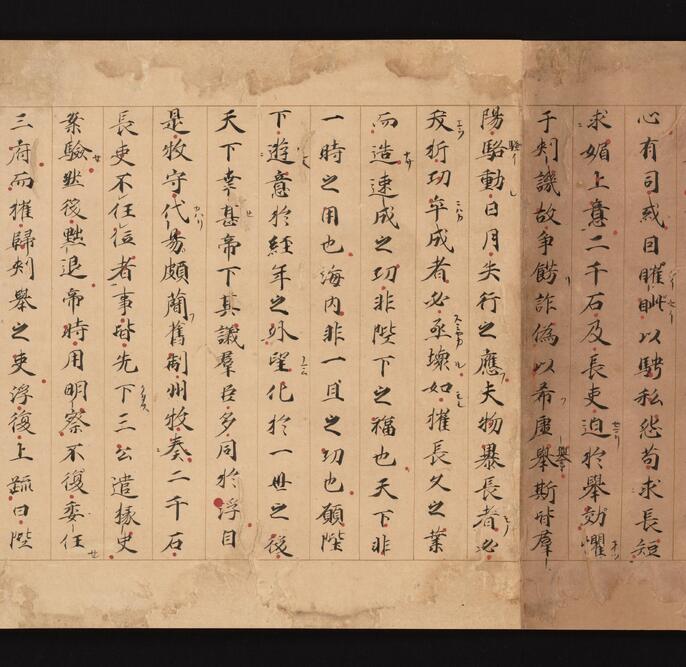 心有司或因睚眦以騁私怨苟求長短
求媚上意二千石及長吏迫於舉劾懼
于刻譏故爭餝詐偽以希虛舉斯皆羣
陽駱動日月失行之應夫物暴長者必
夭折功卒成者必亟壞如摧長久之業
而造速成之功非陛下之福也天下非
一時之用也海內非一旦之功也願陛
下遊意於經年之外望化於一世之後
天下幸甚帝下其議羣臣多同於浮自
是牧守代易頗簡舊制州牧奏二千石
長吏不任位者事皆先下三公遣掾史
案驗然後黜退帝時用明察不復委任
三府而權歸刻舉之吏浮復上疏曰陛